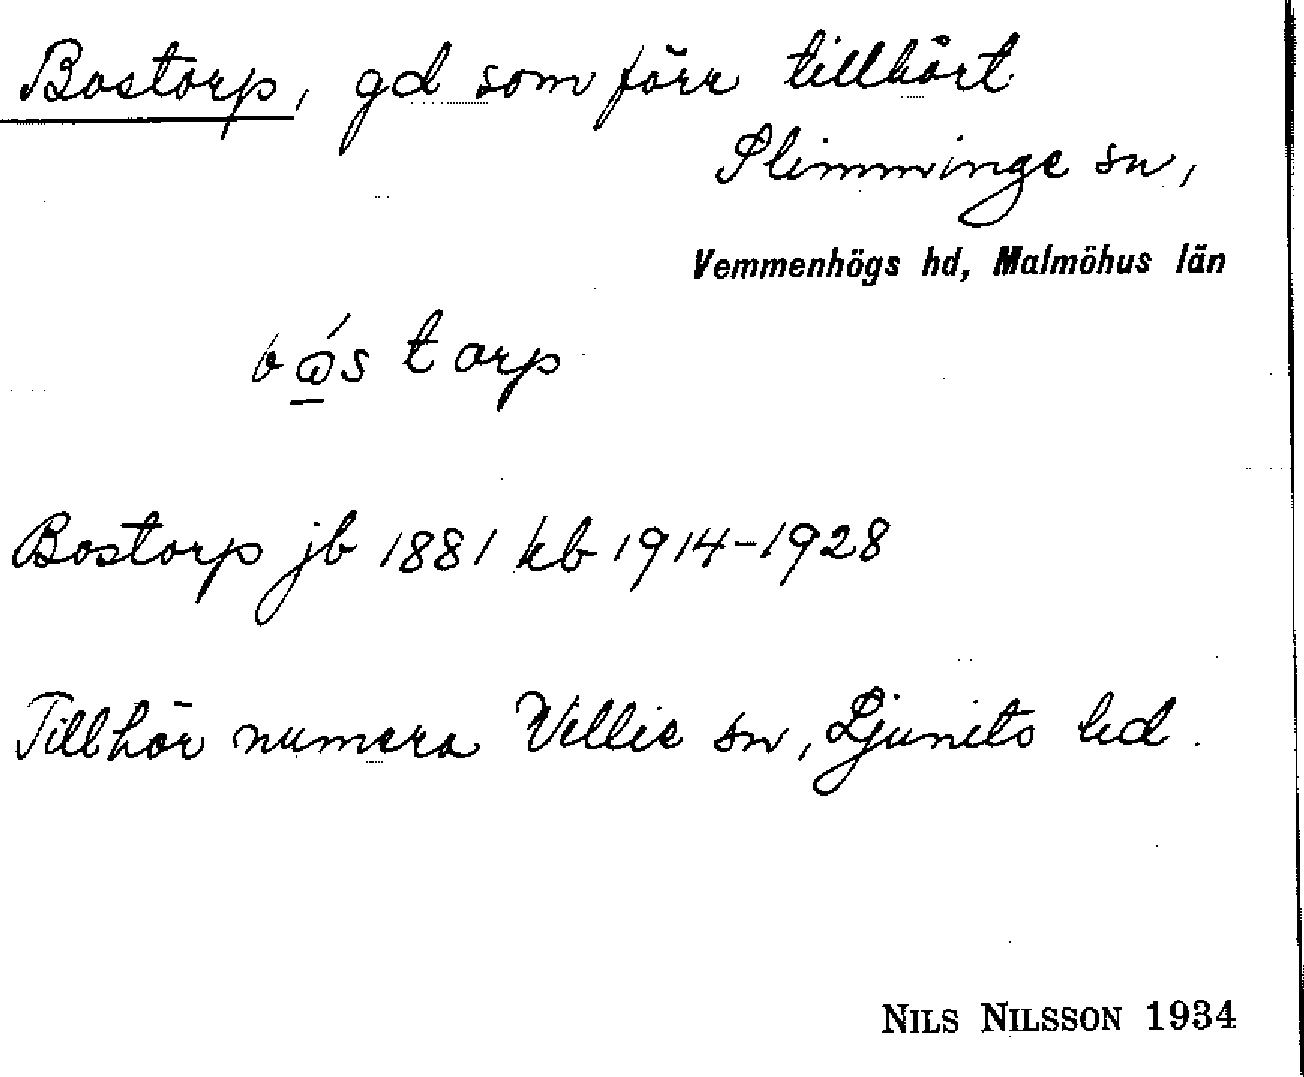 Bostorp, gd som förr tillhört
Slimminge sn,
Vemmenhögs hd, Malmöhus län
torp
Bostorp jb 1881 kb 1914-1928
Tillhör numera Villie sn, Ljunits hd.
NILS NILSSON 1934